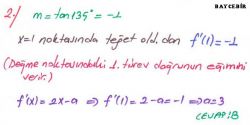 BAYCEBİR
2-) m = tan135° = -1
x=1 noktasında teğet old. dan f'(1) = -1
(Değme noktasındaki 1. türev doğrunun eğimini
verir.)
f'(x) = 2x-a ⇒ f'(1) = 2-a = -1 ⇒ a=3
CEVAP: B